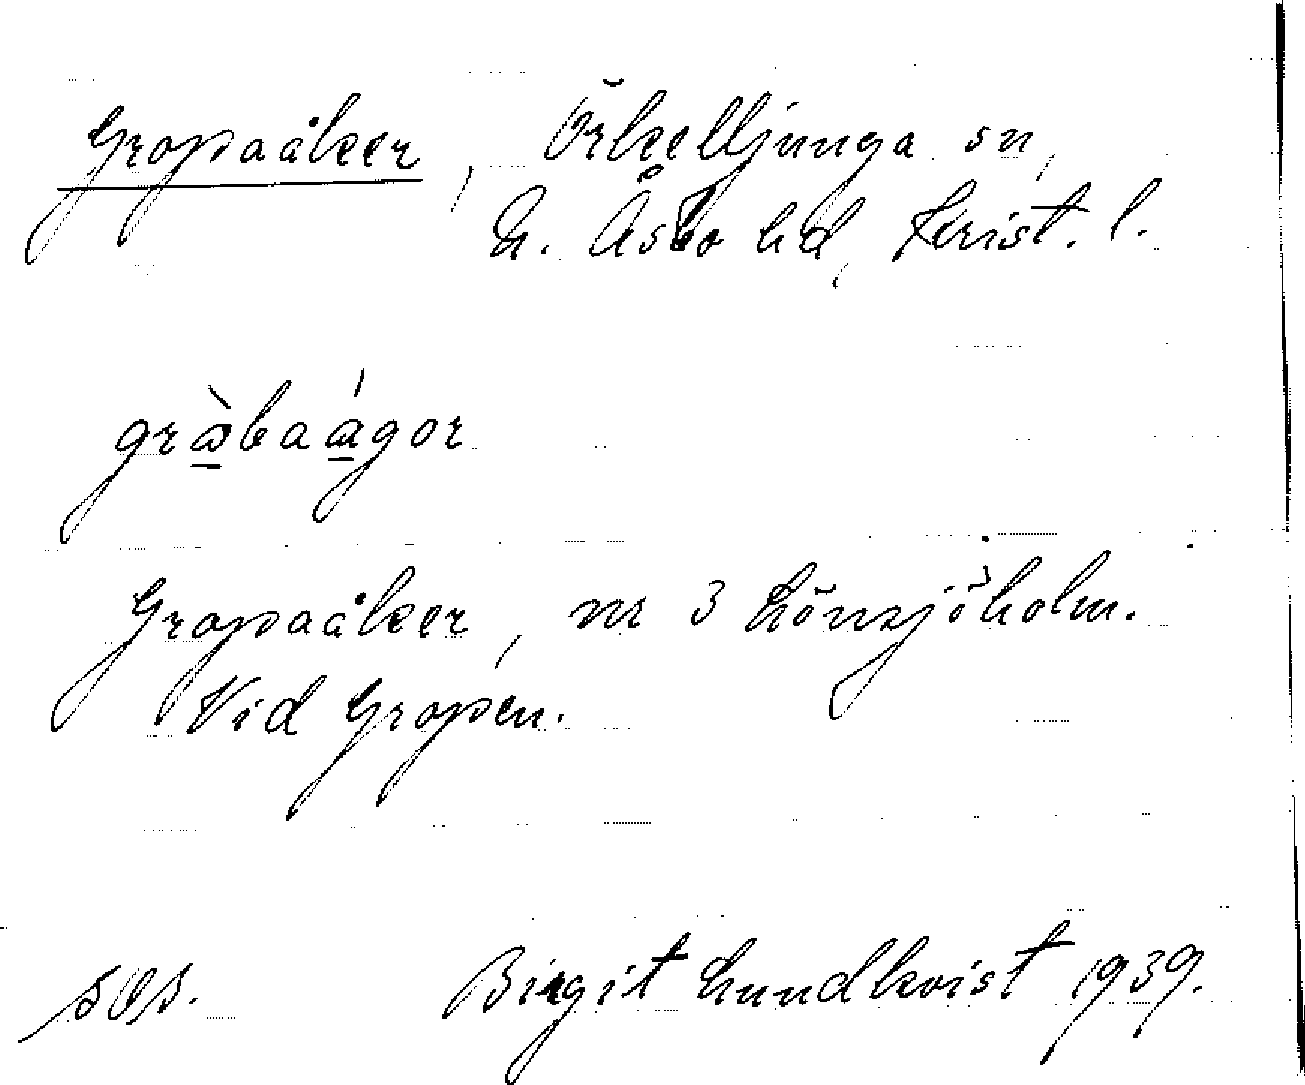 Gropaåker, Örkelljunga sn,
N. Åsbo hd, Krist. l.
gråbaågor
Gropaåker, nr 3 Lönsjöholm.
Vid Gropen.
Birgit Lundkvist 1939.